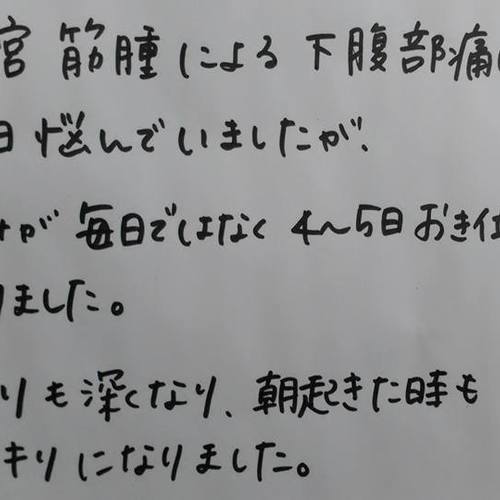 宮 筋腫による 下腹部痛に
日 悩んでいましたが、
みが 毎日ではなく 4〜5日おき位
りました。
りも深くなり、朝起きた時も
キリになりました。